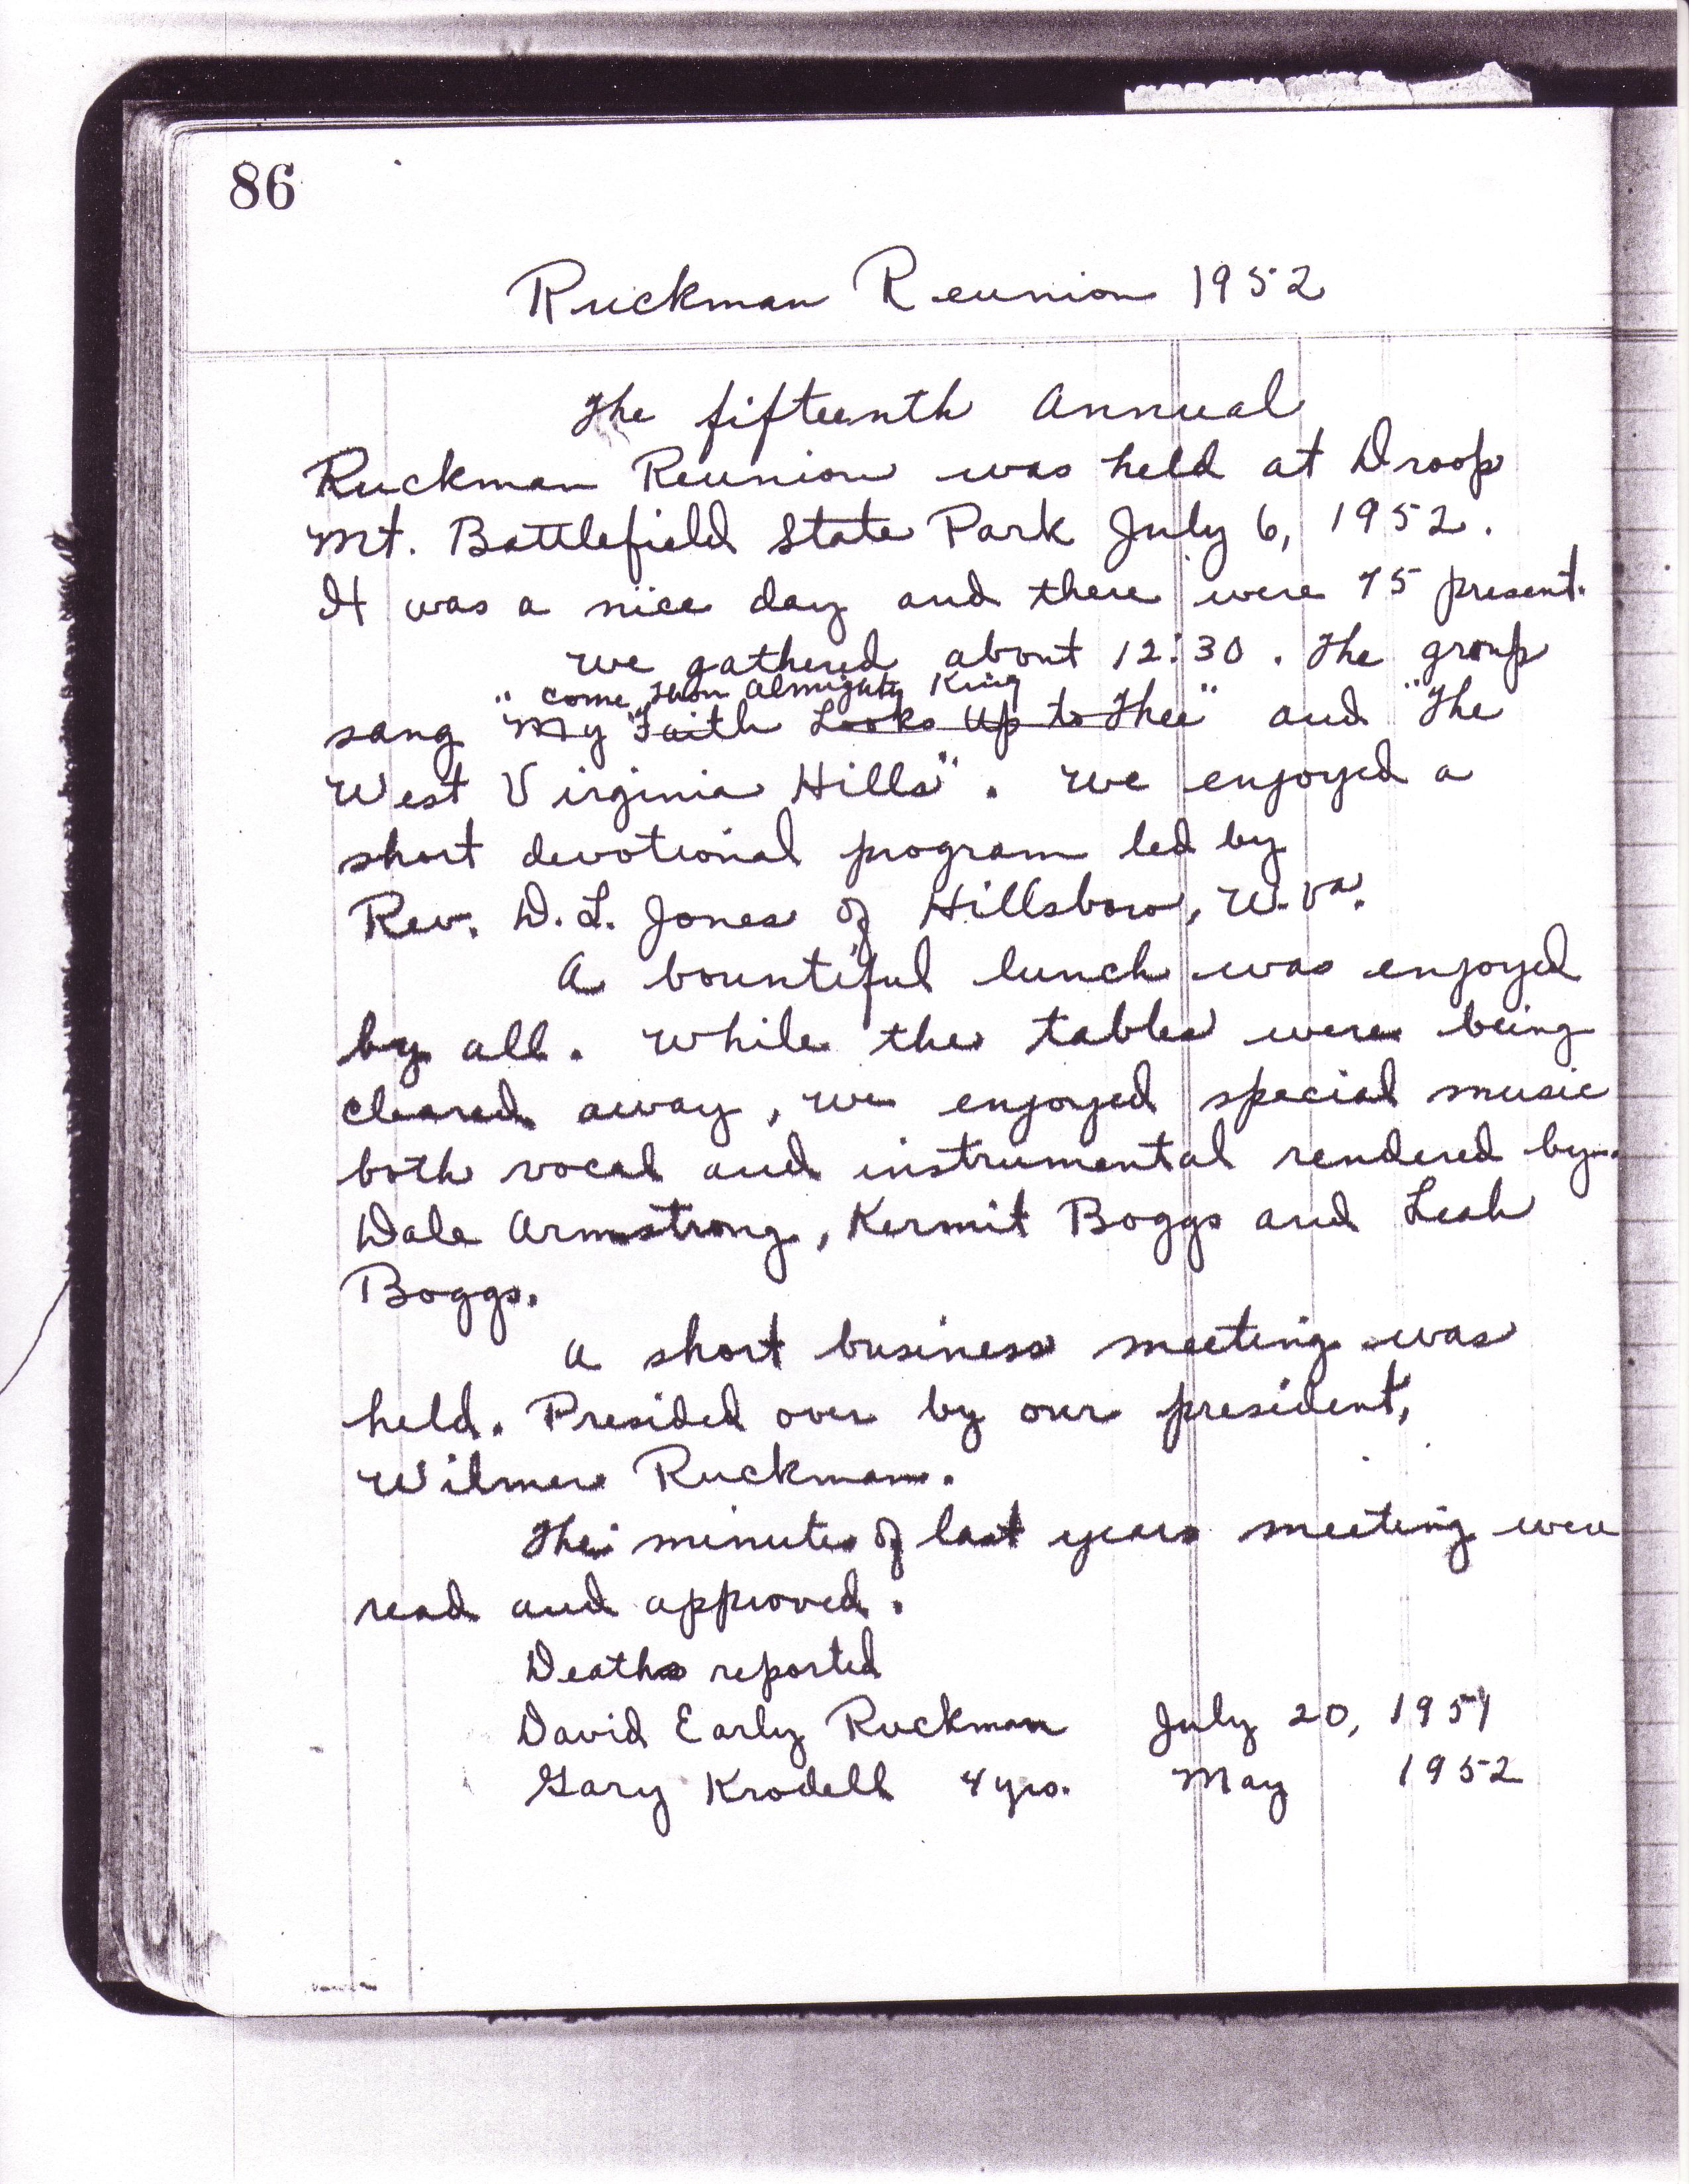 86
Ruckman Reunion 1952
The fifteenth Annual
Ruckman Reunion was held at Droop
Mt. Battlefield State Park July 6, 1952.
It was a nice day and there were 75 present.
We gathered about 12:30. The group
" Come Thou Almighty King
sang "My Faith Looks Up to Thee" and "The
West Virginia Hills". We enjoyed a
short devotional program led by
Rev. D. L. Jones of Hillsboro, W. Va.
A bountiful lunch was enjoyed
by all. While the tables were being
cleared away, we enjoyed special music
both vocal and instrumental rendered by
Dale Armstrong, Kermit Boggs and Leah
Boggs.
A short business meeting was
held. Presided over by our president,
Wilmer Ruckman.
The minutes of last years meeting were
read and approved.
Deaths reported
David Early Ruckman July 20, 1951
Gary Krodell 4 yrs. May 1952